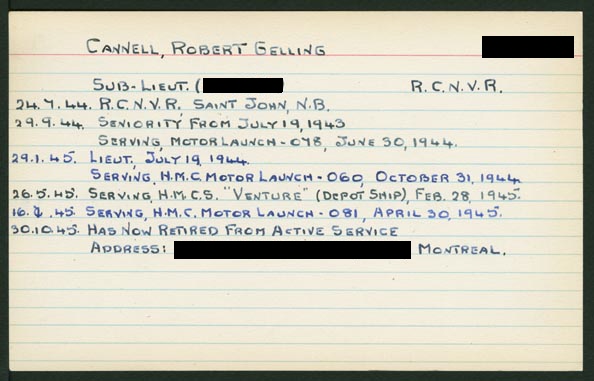 CANNELL, ROBERT GELLING
SUB-LIEUT. ( R.C.N.V.R.
24.7.44. R.C.N.V.R. SAINT JOHN, N.B.
29.9.44. SENIORITY FROM JULY 19, 1943
SERVING, MOTOR LAUNCH - 078, JUNE 30, 1944.
29.1.45. LIEUT, JULY 19, 1944.
SERVING, H.M.C. MOTOR LAUNCH - 060, OCTOBER 31, 1944.
26.5.45. SERVING, H.M.C.S. "VENTURE" (DEPOT SHIP), FEB. 28, 1945.
16. .45. SERVING, H.M.C. MOTOR LAUNCH - 081, APRIL 30, 1945.
30.10.45. HAS NOW RETIRED FROM ACTIVE SERVICE
ADDRESS: MONTREAL.